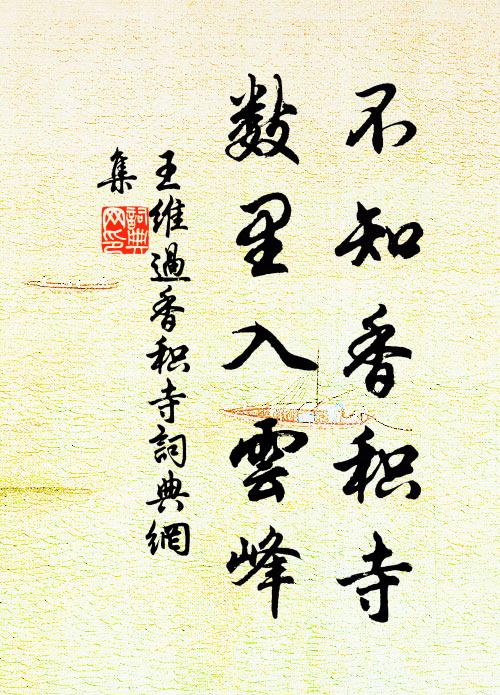 不知香积寺
数里入雲峰
王維過香积寺詞典網
集
詞典网印